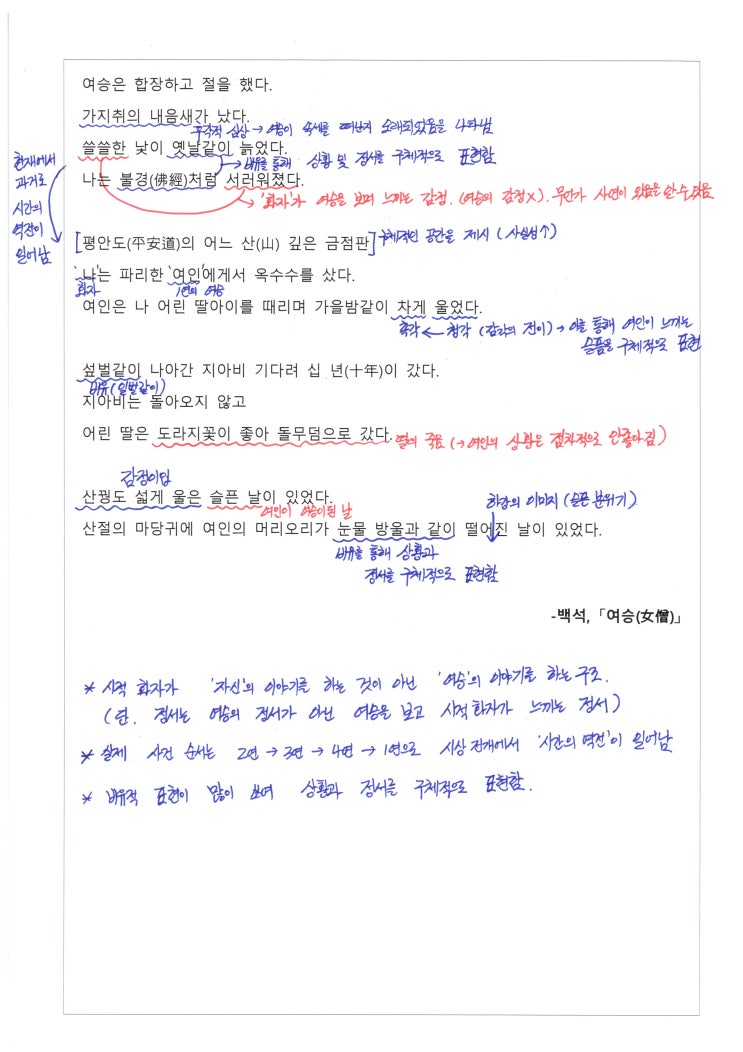 여승은 합장하고 절을 했다.
가지취의 내음새가 났다.
후각적 심상 → 여승이 속세를 떠난지 오래되었음을 나타냄
쓸쓸한 낯이 옛날같이 늙었다.
→ 비유를 통해 상황 및 정서를 구체적으로 표현함
나는 불경(佛經)처럼 서러워졌다.
→ '화자'가 여승을 보며 느끼는 감정. (여승의 감정 X). 무언가 사연이 있음을 알 수 있음
현재에서
과거로
시간의
역전이
일어남
[평안도(平安道)의 어느 산(山) 깊은 금점판] 구체적인 공간을 제시 (사실성↑)
'나'는 파리한 '여인'에게서 옥수수를 샀다.
화자 1연의 여승
여인은 나 어린 딸아이를 때리며 가을밤같이 차게 울었다.
촉각 ← 청각 (감각의 전이) → 이를 통해 여인이 느끼는
슬픔을 구체적으로 표현
섶벌같이 나아간 지아비 기다려 십 년(十年)이 갔다.
비유 (일벌같이)
지아비는 돌아오지 않고
어린 딸은 도라지꽃이 좋아 돌무덤으로 갔다. 딸의 죽음 (→ 여인의 상황은 점차적으로 안좋아짐)
감정이입
산꿩도 섧게 울은 슬픈 날이 있었다.
여인이 여승이 된 날 하강의 이미지 (슬픈 분위기)
산절의 마당귀에 여인의 머리오리가 눈물 방울과 같이 떨어진 날이 있었다.
비유를 통해 상황과
정서를 구체적으로 표현함
-백석,「여승(女僧)」
* 시적 화자가 '자신'의 이야기를 하는 것이 아닌 '여승'의 이야기를 하는 구조.
(단. 정서는 여승의 정서가 아닌 여승을 보고 시적화자가 느끼는 정서)
* 실제 사건 순서는 2연 → 3연 → 4연 → 1연으로 시상 전개에서 '시간의 역전'이 일어남
* 비유적 표현이 많이 쓰여 상황과 정서를 구체적으로 표현함.